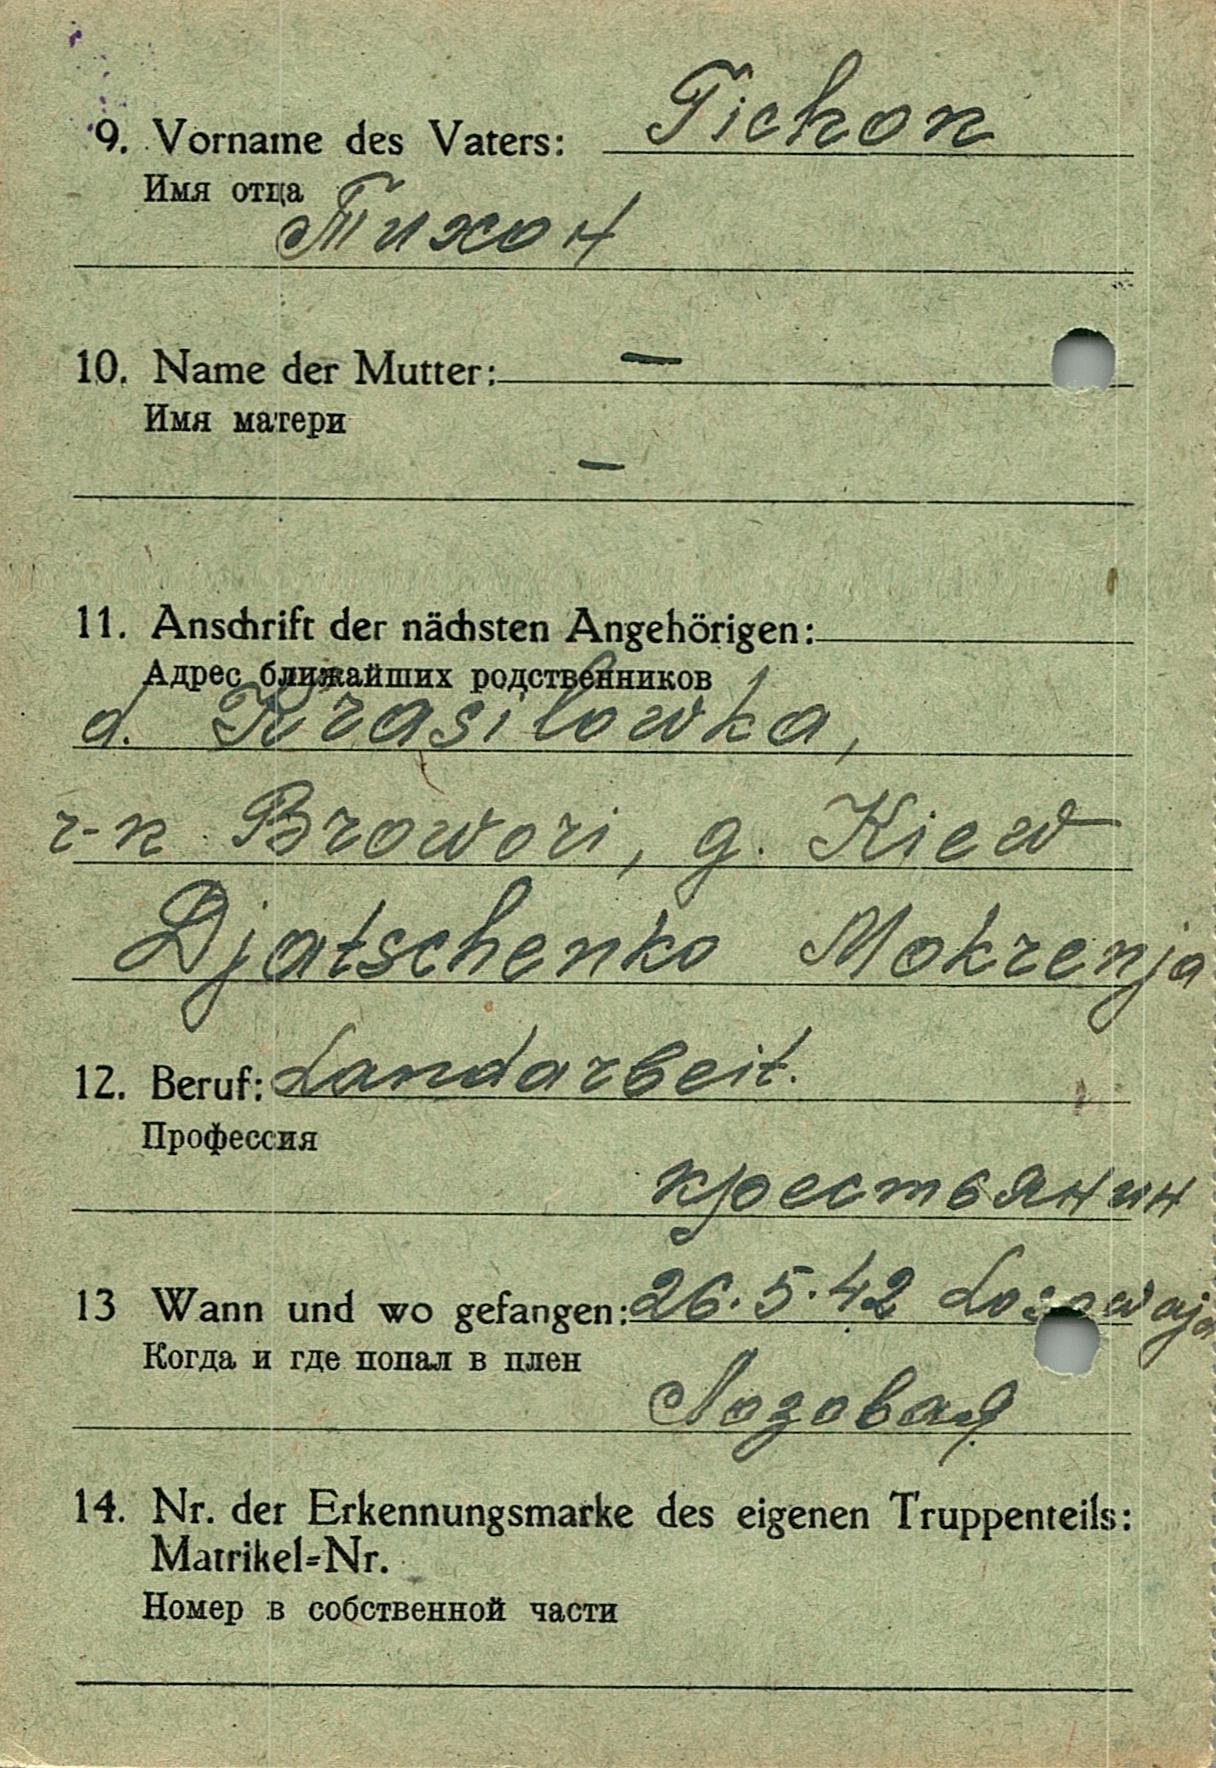 9. Vorname des Vaters: Tichon
Имя отца
Тихон
10. Name der Mutter: —
Имя матери
—
11. Anschrift der nächsten Angehörigen:
Адрес ближайших родственников
d. Krasilowka,
r-n Browori, g. Kiew
Djatschenko Mokrenja
12. Beruf: Landarbeit.
Профессия
крестьянин
13 Wann und wo gefangen: 26.5.42 Losowaja
Когда и где попал в плен
Лозовая
14. Nr. der Erkennungsmarke des eigenen Truppenteils:
Matrikel=Nr.
Номер в собственной части